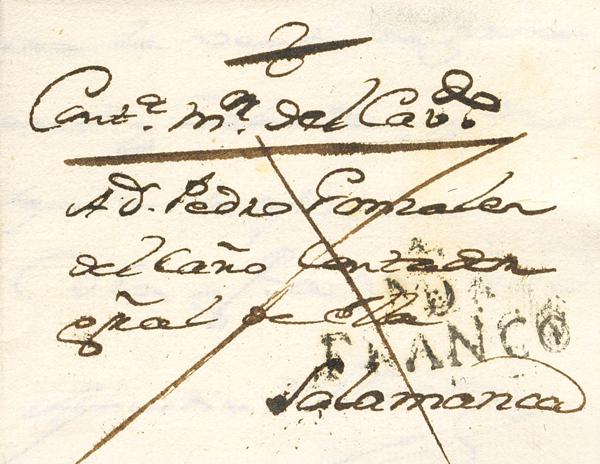 Cont.ª m.ºʳ del Cav.do
A d.n Pedro Gonzalez
del Caño Contador
gñal de ella
FRANCO
Salamanca